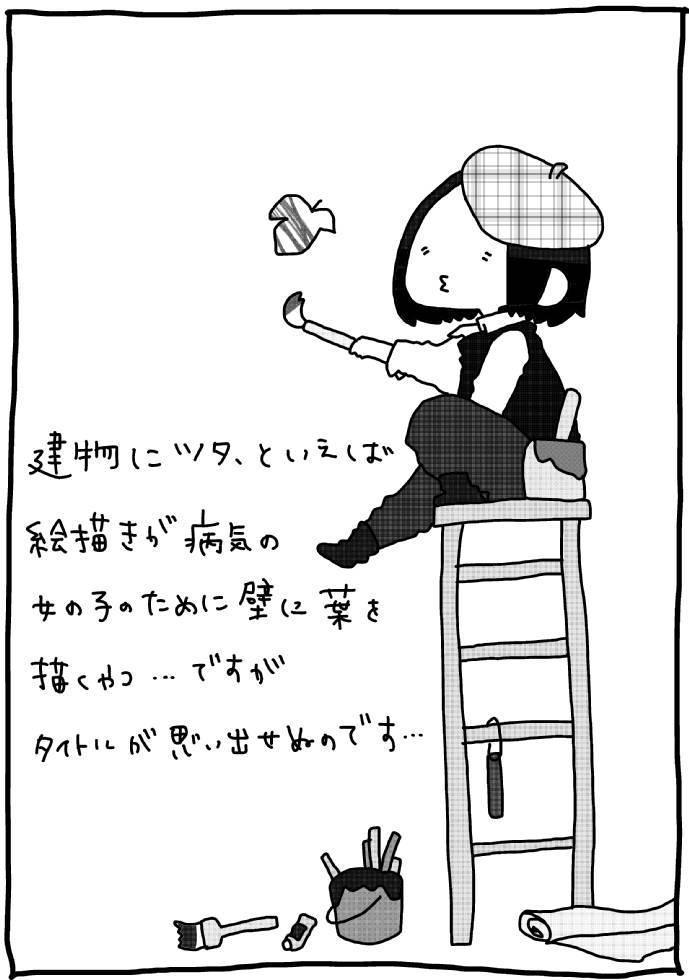 建物にツタ、といえば
絵描きが病気の
女の子のために壁に葉を
描くやつ…ですが
タイトルが思い出せぬのです…